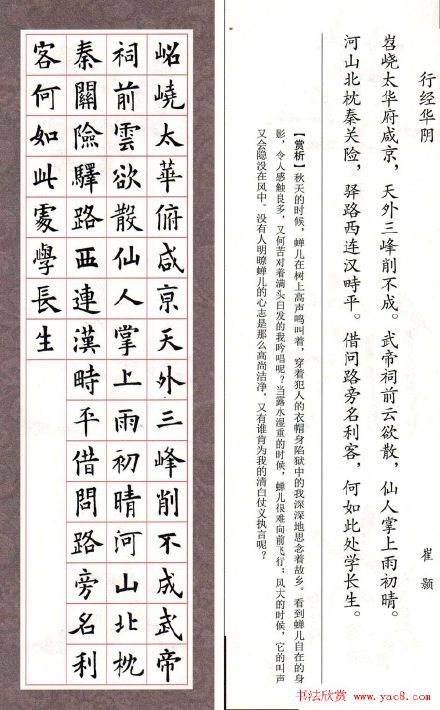 行经华阴
崔颢
岧峣太华府咸京，天外三峰削不成。武帝祠前云欲散，仙人掌上雨初晴。
河山北枕秦关险，驿路西连汉時平。借问路旁名利客，何如此处学长生。
【赏析】秋天的时候，蝉儿在树上高声鸣叫着，穿着犯人的衣帽身陷狱中的我深深地思念着故乡。看到蝉儿自在的身
影，令人感触良多，又何苦对着满头白发的我吟唱呢？当露水湿重的时候，蝉儿很难向前飞行；风大的时候，它的叫声
又会隐没在风中。没有人明瞭蝉儿的心志是那么高尚洁净，又有谁肯为我的清白仗义执言呢？
岧嶢太華俯咸京天外三峰削不成武帝
祠前雲欲散仙人掌上雨初晴河山北枕
秦關險驛路西連漢時平借問路旁名利
客何如此處學長生
书法欣赏 www.yac8.com